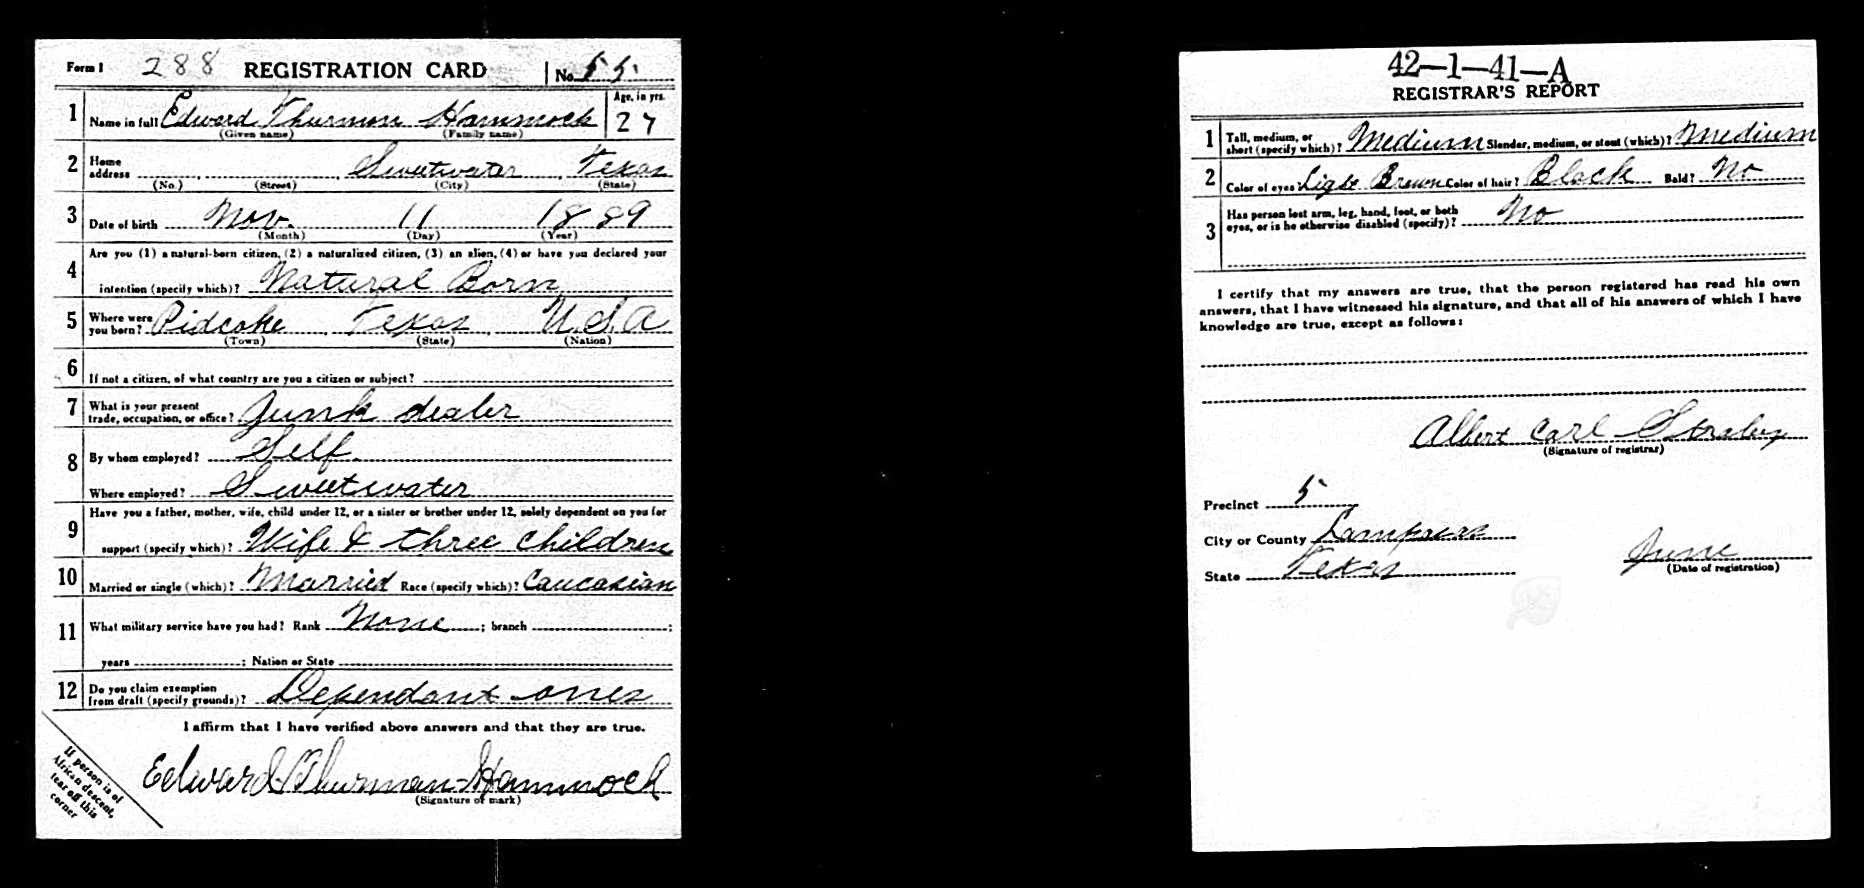 Form 1 288 REGISTRATION CARD No. 55
1 Name in full Edward Thurmon Hammock Age, in yrs. 27
(Given name) (Family name)
2 Home address Sweetwater Texas
(No.) (Street) (City) (State)
3 Date of birth Nov. 11 1889
(Month) (Day) (Year)
4 Are you (1) a natural-born citizen, (2) a naturalized citizen, (3) an alien, (4) or have you declared your
intention (specify which)? Natural Born
5 Where were you born? Pidcoke Texas U.S.A
(Town) (State) (Nation)
6 If not a citizen, of what country are you a citizen or subject?
7 What is your present trade, occupation, or office? Junk dealer
8 By whom employed? Self.
Where employed? Sweetwater
9 Have you a father, mother, wife, child under 12, or a sister or brother under 12, solely dependent on you for
support (specify which)? Wife & three children
10 Married or single (which)? Married Race (specify which)? Caucasian
11 What military service have you had? Rank None ; branch ;
years ; Nation or State
12 Do you claim exemption from draft (specify grounds)? Dependant ones
I affirm that I have verified above answers and that they are true.
Edward Thurman Hammock
(Signature or mark)
If person is of
African descent,
tear off this
corner
42-1-41-A
REGISTRAR'S REPORT
1 Tall, medium, or short (specify which)? Medium Slender, medium, or stout (which)? Medium
2 Color of eyes Light Brown Color of hair? Black Bald? No
3 Has person lost arm, leg, hand, foot, or both eyes, or is he otherwise disabled (specify)? No
I certify that my answers are true, that the person registered has read his own
answers, that I have witnessed his signature, and that all of his answers of which I have
knowledge are true, except as follows:
Albert Carl
(Signature of registrar)
Precinct 5
City or County Lampasas
State Texas June
(Date of registration)